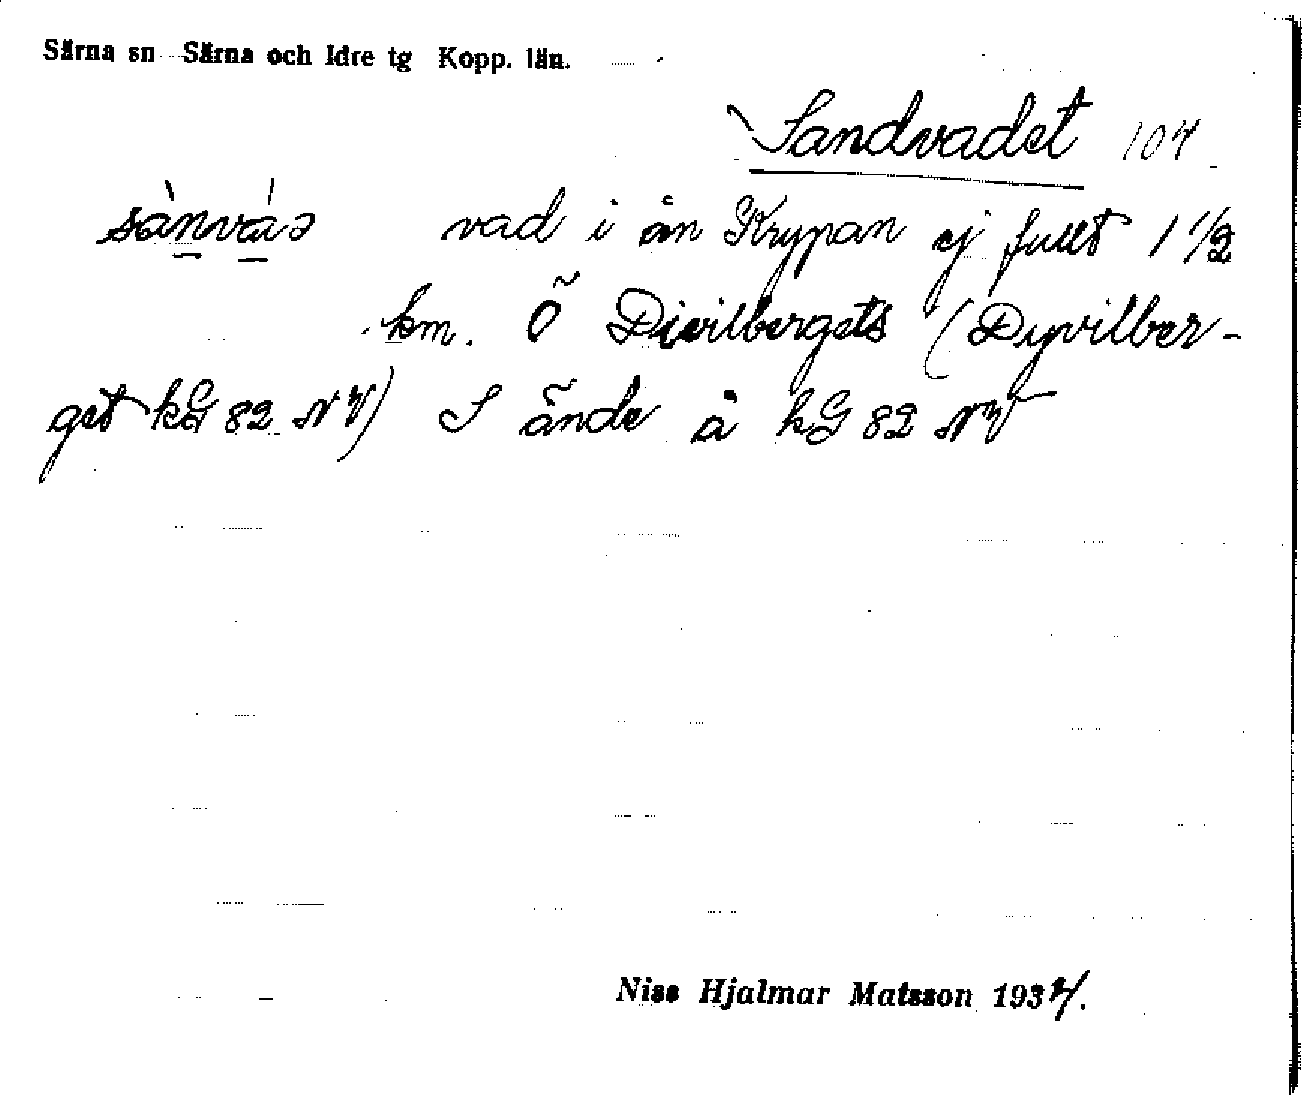 Särna sn Särna och Idre tg Kopp. län.
Sandvadet 104
sànvàə vad i ån Krypan ej fullt 1 1/2
km. Ö Divilbergets (Dyvilber-
get kG 82 NV) S ände å kG 82 NV
Niss Hjalmar Matsson 1934.